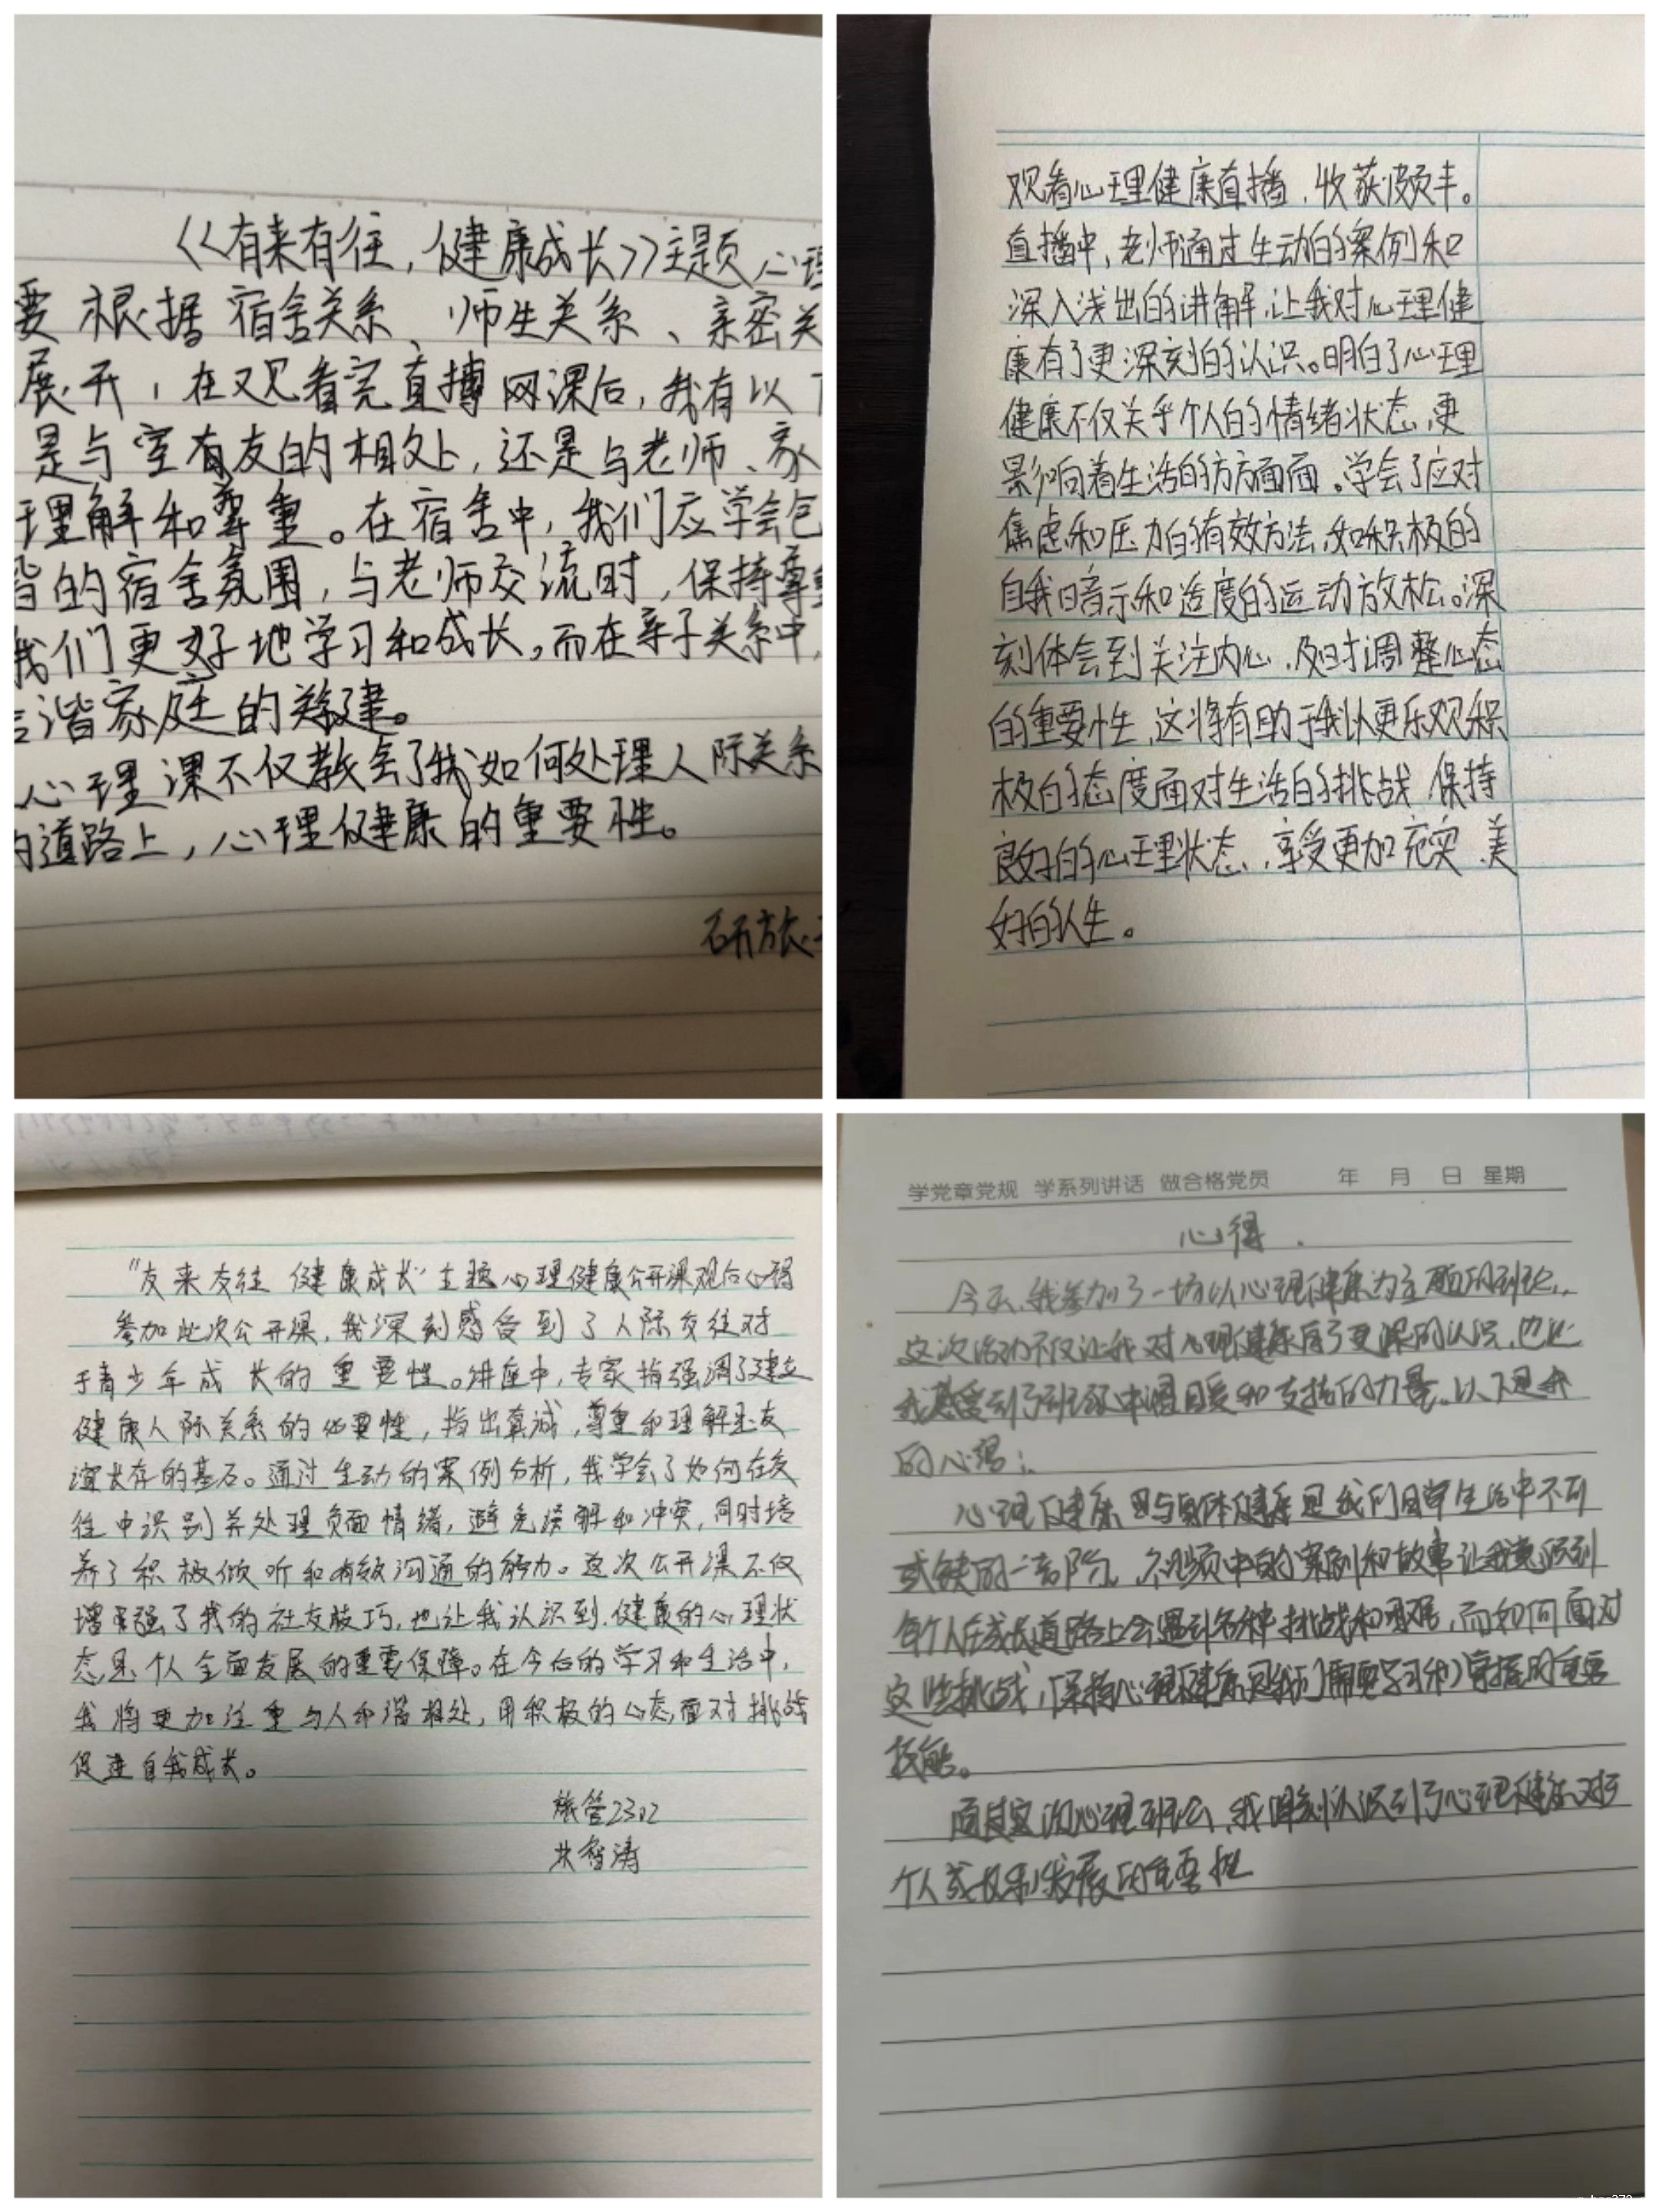 《有来有往，健康成长》主题心理
要根据宿舍关系、师生关系、亲密关
展开，在观看完直播网课后，我有以下
是与室友的相处，还是与老师、家
理解和尊重。在宿舍中，我们应学会包
皆的宿舍氛围，与老师交流时，保持尊重
我们更好地学习和成长。而在亲子关系中，
谐家庭的关键。
心理课不仅教会了我如何处理人际关系
的道路上，心理健康的重要性。
研旅
观看心理健康直播，收获颇丰。
直播中，老师通过生动的案例和
深入浅出的讲解，让我对心理健
康有了更深刻的认识。明白了心理
健康不仅关乎个人的情绪状态，更
影响着生活的方方面面。学会了应对
焦虑和压力的有效方法，如积极的
自我暗示和适度的运动放松。深
刻体会到关注内心，及时调整心态
的重要性，这将有助于我以更乐观积
极的态度面对生活的挑战，保持
良好的心理状态，享受更加充实、美
好的人生。
"友来友往 健康成长"主题心理健康公开课观后心得
参加此次公开课，我深刻感受到了人际交往对
于青少年成长的重要性。讲座中，专家指强调了建立
健康人际关系的必要性，指出真诚，尊重和理解是友
谊长存的基石。通过生动的案例分析，我学会了如何在交
往中识别并处理负面情绪，避免误解和冲突，同时培
养了积极倾听和有效沟通的能力。这次公开课不仅
增强了我的社交技巧，也让我认识到，健康的心理状
态是个人全面发展的重要保障。在今后的学习和生活中，
我将更加注重与人和谐相处，用积极的心态面对挑战
促进自我成长。
旅管2302
智涛
学党章党规 学系列讲话 做合格党员 年 月 日 星期
心得.
今天，我参加了一场以心理健康为主题的班会，
这次活动不仅让我对心理健康有了更深的认识，也让
我感受到了班级中温暖和支持的力量。以下是我
的心得：
心理健康与身体健康是我们日常生活中不可
或缺的一部分，视频中的案例和故事让我意识到
每个人在成长道路上会遇到各种挑战和困难，而如何面对
这些挑战，保持心理健康是我们需要学习和掌握的重要
技能。
这次心理班会，我深刻认识到了心理健康对于
个人成长和发展的重要性